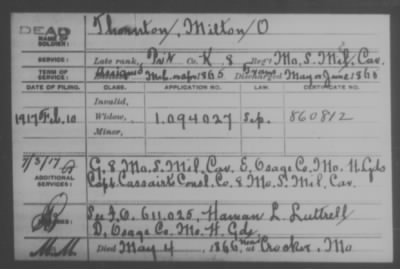 DEAD Thornton, Milton O
NAME OF SOLDIER:
SERVICE: Late rank, Pvt Co. K, 8 Reg't Mo. S. Mil. Cav.
TERM OF SERVICE: Discharged May or June 1865
DATE OF FILING. CLASS. APPLICATION NO. LAW. CERTIFICATE NO.
Invalid,
1917 Feb. 10 Widow, 1.094027 Sep. 860812
Minor,
7/3/17
ADDITIONAL SERVICES: G, 8 Mo. S. Mil. Cav. E, Osage Co. Mo. H. Gds
Capt Consl. Co. 8 Mo. S. Mil. Cav.
See I.O. 611.025, L. Luttrell
D, Osage Co. Mo. H. Gds.
Died May 4 1866 near at Crocker, Mo